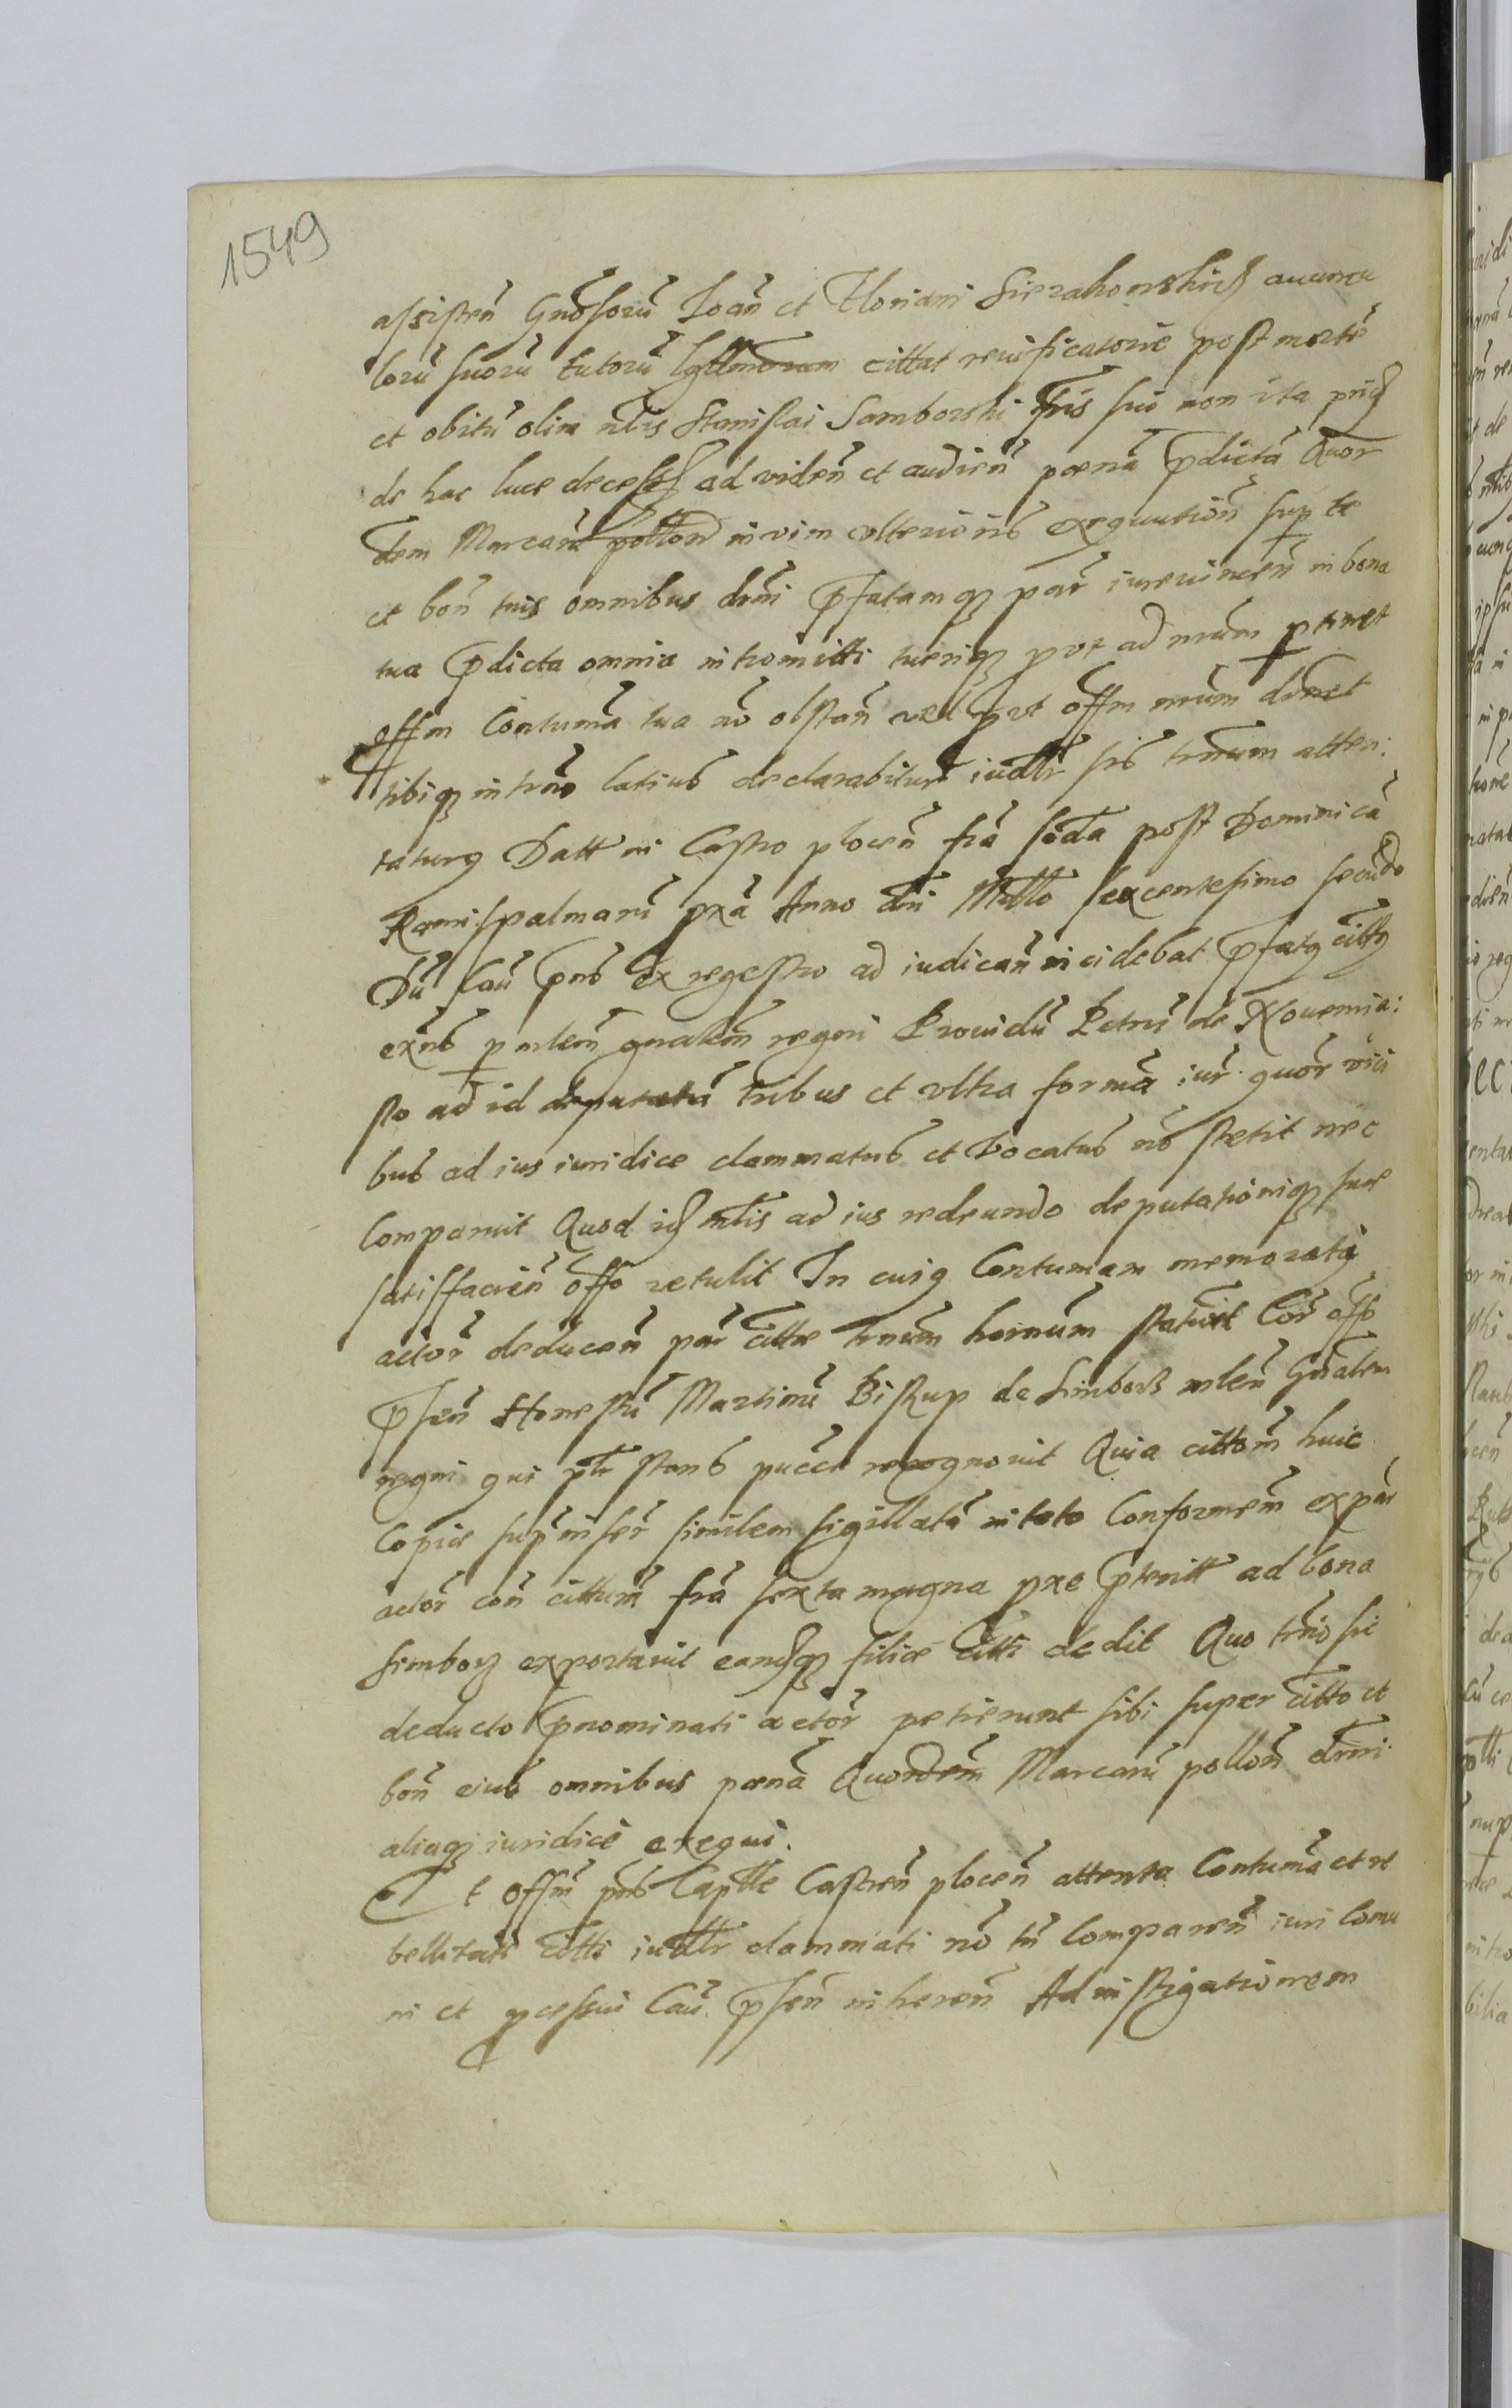 1549
assisten Gnosoru Joan et Floriani Sierakowskich auuncu
loru suoru tutoru cittat reuificatorie post morte
et obitu olim nlis Stanislai Samborski fris sui non ita prid
de hac luce decess ad viden et audien poena pdicta Quor
dem Marcaru pollon in vim vlterioris exequution sup te
et bon tuis omnibus drni pfatamq par iureuincen in bona
tua pdicta omnia intromitti tueriq put ad nrum ptinet
offm Contuma tua no obstan vel put offm nrum drnet
tibiq in trno latius declarabitur iudlr sis trnum atten:
taturq Datt in Castro plocen fria scda post Dominica
Ramispalmaru pxa Anno dni Millo sexcentesimo secudo
Du Cau pns ex regestro ad iudican incidebat pfatq cittq
exns p mlem gnalem regni Prouidu Petru de Nouemia:
sto ad id deputatu tribus et vltra forma iur quor vici
bus ad ius iuridice clammatus et Vocatus no stetit nec
Comparuit Quod id mlis ad ius redeundo deputationiq sue
satisfacien offo retulit In cuiq Contumam memorati
actor deducen par cittae trnum hornum statuit Cor offo
psen Honestu Martinu Biskup de Simborz mlem Gnalem
regni qui ptr stans pucce recognouit Quia cittom huic
Copie sup inser similem sigillata in toto Conformem ex par
actor con cittum fria sexta magna pxe pterit ad bona
Simborz exportauit eamdq filiae citti dedit Quo trno sic
deducto pnominati actor petierunt sibi super citto et
bon eius omnibus poena Quordem Marcaru pollon drni
aliaq iuridice exequi.
Et offm pns Captle Castren plocen attenta Contuma et re
bellitate citti iudlr clammati no tn Comparen iuri Comu
ni et pcessui Cau psen inheren Ad instigationem